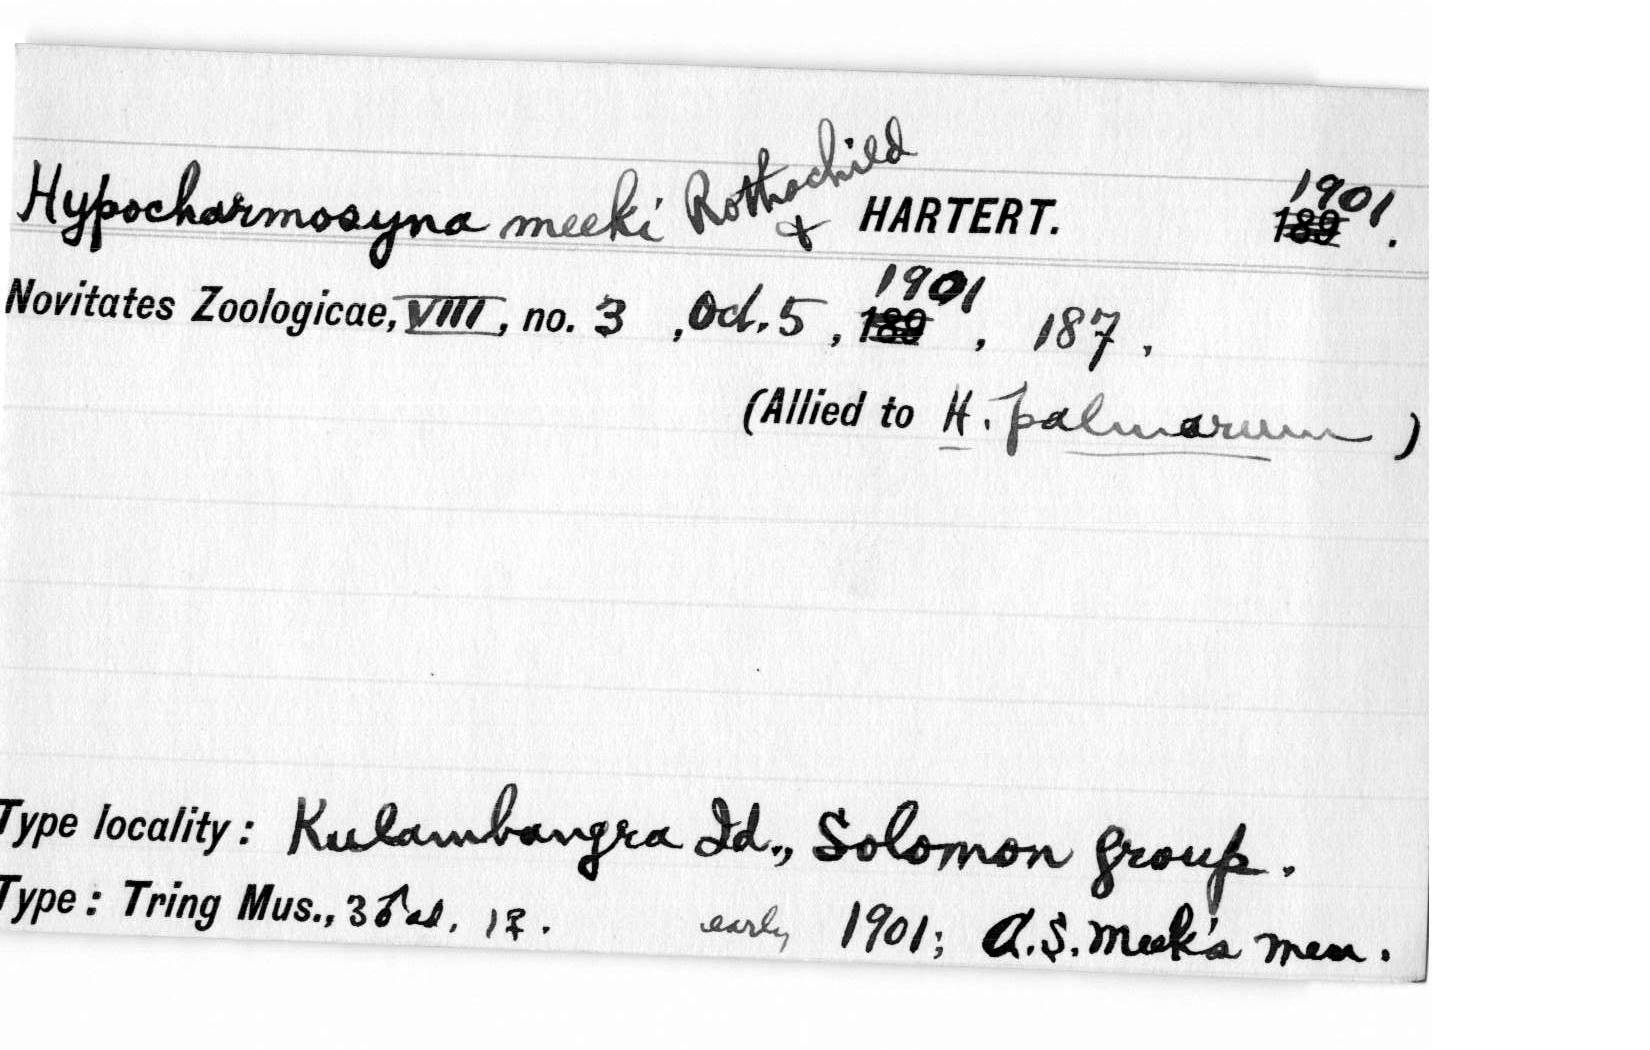 Hypocharmosyna meeki Rothschild & HARTERT. 1901.
Novitates Zoologicae, VIII, no. 3, Oct. 5, 1901, 187.
(Allied to H. palmarum)
Type locality: Kulambangra Id., Solomon group.
Type: Tring Mus., 3 ♂ ad. 1 ♀. early 1901; A.S. Meek's men.